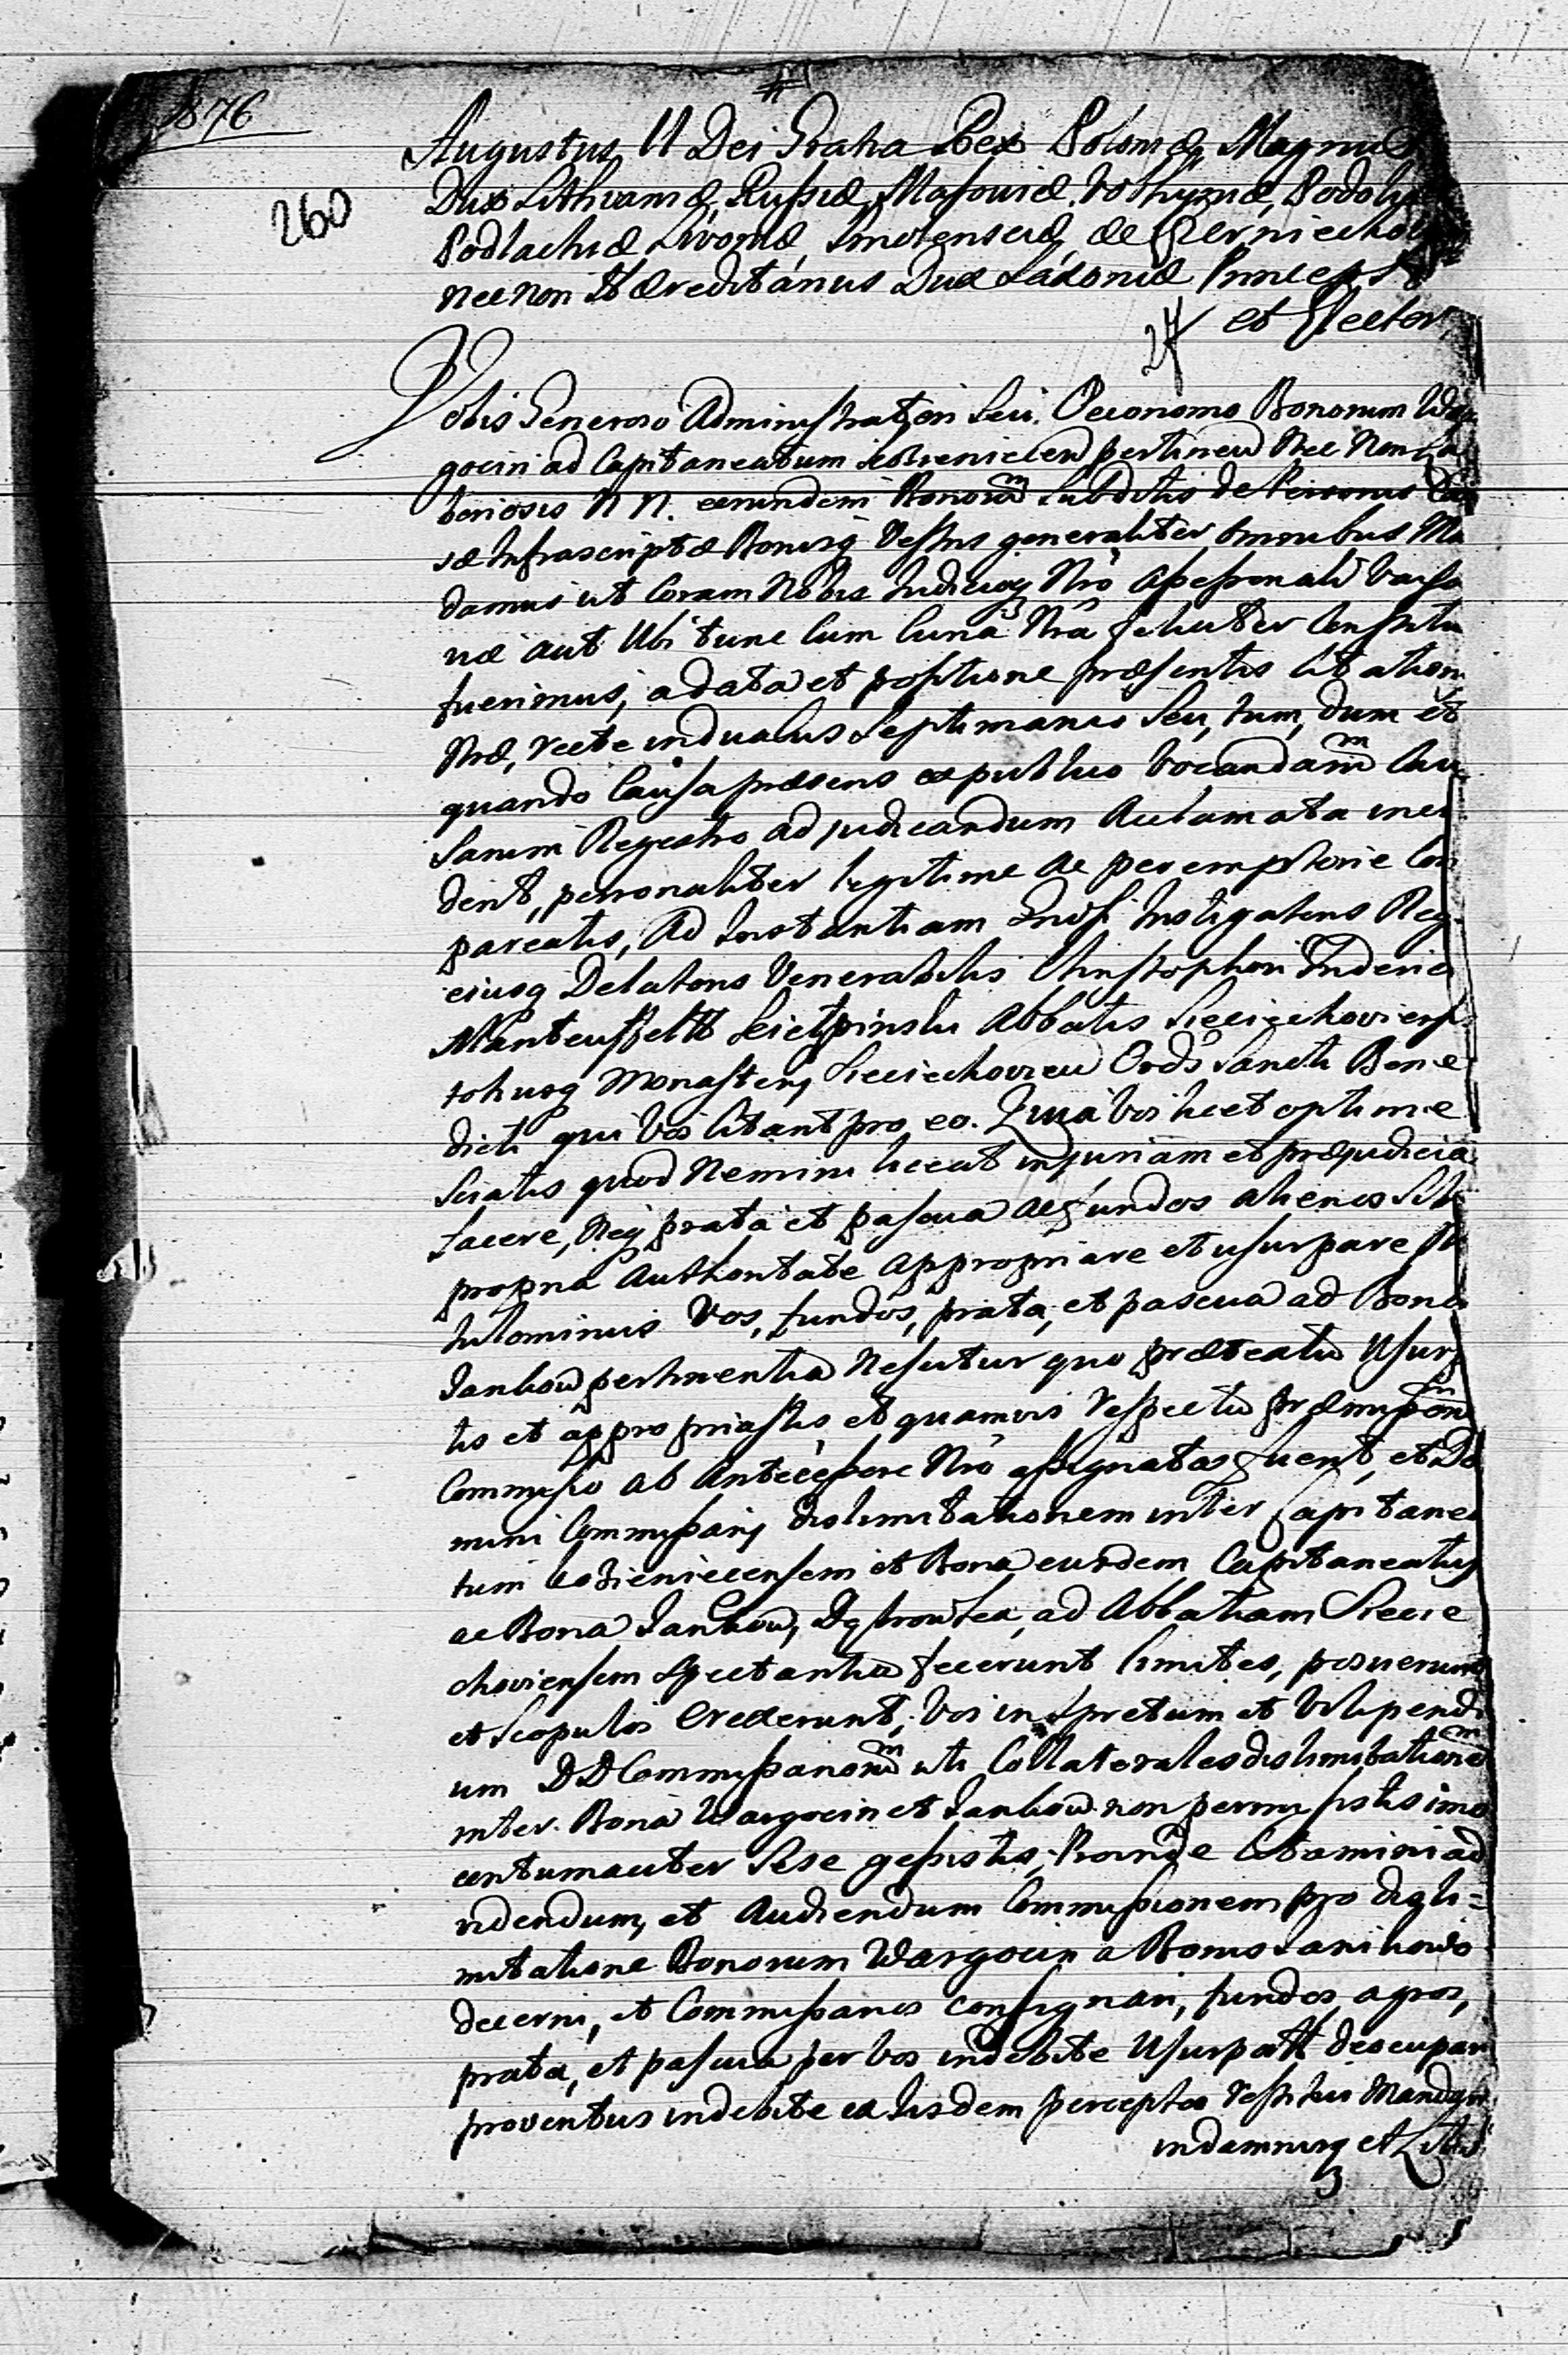 1876
260
Augustus II Dei Gratia Rex Poloniæ, Magnus
Dux Lithvaniæ, Russiæ, Masoviæ, Volhyniæ, Podoliæ
Podlachiæ Livoniæ, Smolensciæ, ac Czerniechov
nec non Hæreditarius Dux Saxoniæ Princeps
24 et Elector
Vobis Generoso Administratori seu Oeconomo Bonorum War
gocin ad Capitaneatum pertinen nec non La
boriosis N N. earundem Bonorum Subditis de Personis Cau
sæ infrascriptæ Bonisq Vestris generaliter omnibus Ma
damus ut Coram Nobis Iudicioq Nro Assessoriali Varso
viæ aut Ubi tunc Cum Curia Nra feliciter Constitu
fuerimus, a data et positione præsentis Citation
Nræ, recte in duabus Septimanis seu, tum, dum et
quando Causa præsens ex publico Vocandarum Cau
sarum Regestro ad judicandum Acclamata inci
derit, personaliter legitime ac peremptorie Com
pareatis, Ad Instantiam Gnosi Instigatoris Reg
eiusq Delatoris Venerabilis Christophori Friderici
Manteuffell Kielpinski Abbatis Sieciechoviens
totiusq Monasterij Sieciechovien Ordis Sancti Bene
dicti qui Vos Citant pro eo. Quia Vos licet optime
Sciatis quod Nemini liceat injuriam et præjudicia
facere, Neq prata et pascua ac fundos alienos Sibi
propria Authoritate appropriare et usurpare ni
hilominus Vos, fundos, prata, et pascua ad Bona
Iankow pertinentia Nescitur quo prætextu Usurp
tis et appropriastis et quamvis respectu præmissorum
Commissio ab Antecessore Nro assignatas fuerit, et Do
mini Commissarij dislimitationem inter Capitanea
tum Kozienicensem et Bona eiusdem Capitaneatus
ac Bona Iankow, ad Abbatiam Siecie
choviensem Spectantia fecerunt limites, posuerunt
et Scopulos Erexerunt, Vos in Spretum et Vilipendi
um DD Commissariorum uti Collaterales dislimitationem
inter Bona Wargocin et Iankow non permisistis imo
contumaciter Sese gessistis, Proinde Citamini ad
videndum, et Audiendum Commissionem pro disli=
mitatione Bonorum Wargocin a Bonis Iankowo
decerni, et Commissarios consignari, fundos, agros,
prata, et pascua per Vos indebite Usurpata desoccupari
proventus indebite ex iisdem perceptos restitui Mandari
indemnisq et Litis